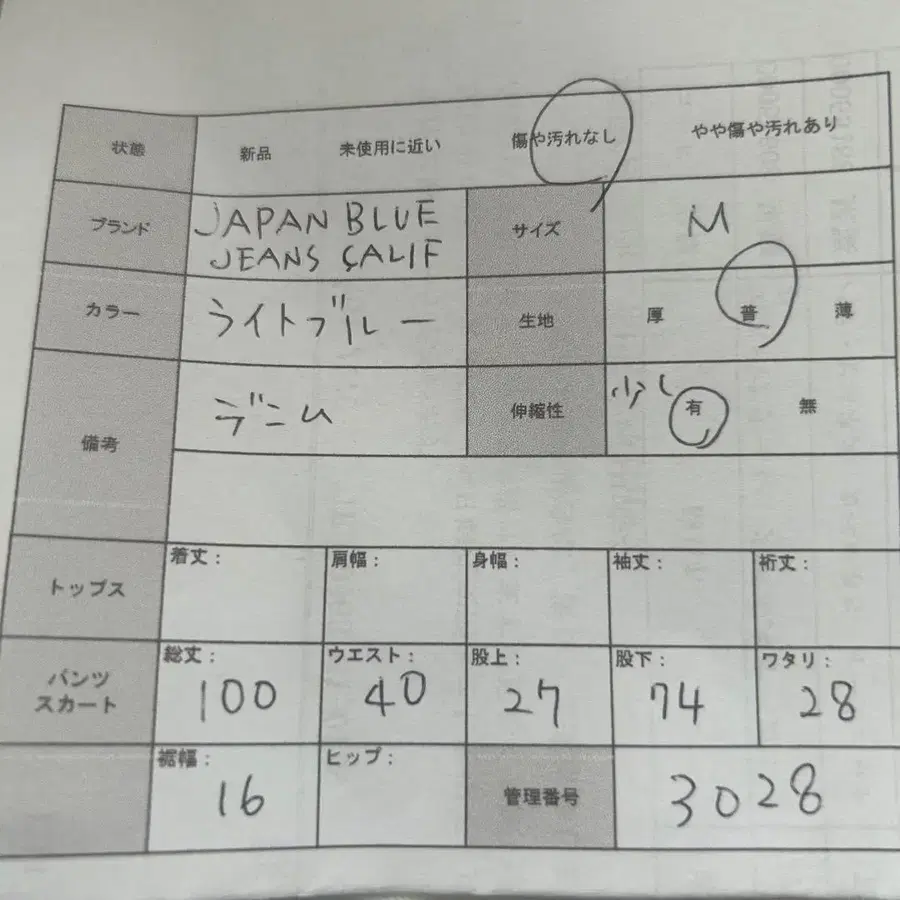 状態 新品 未使用に近い 傷や汚れなし やや傷や汚れあり
ブランド JAPAN BLUE JEANS CALIF サイズ M
カラー ライトブルー 生地 厚 普 薄
備考 デニム 伸縮性 少し 有 無
トップス 着丈: 肩幅: 身幅: 袖丈: 裄丈:
パンツ スカート 総丈: 100 ウエスト: 40 股上: 27 股下: 74 ワタリ: 28
裾幅: 16 ヒップ: 管理番号 3028